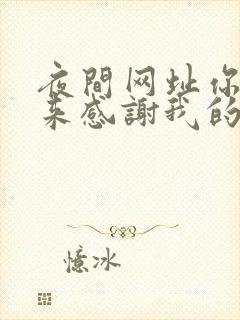 夜間网址你
来感謝我的
憶冰